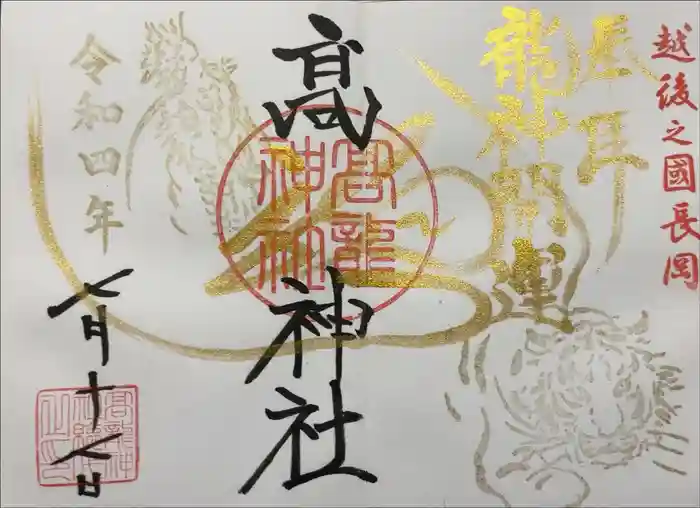 越後之國長岡
龍神開運
髙
神社
高龍
神社
令和四年
七月十七日